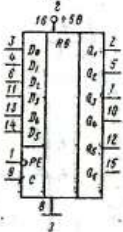 2
16 +5В
RG
3 D0 Q1 2
4 D1 Q2 5
6 D2 Q3 7
11 D3 Q4 10
13 D4 Q5 12
14 D5 Q6 15
1 PE
9 C
8